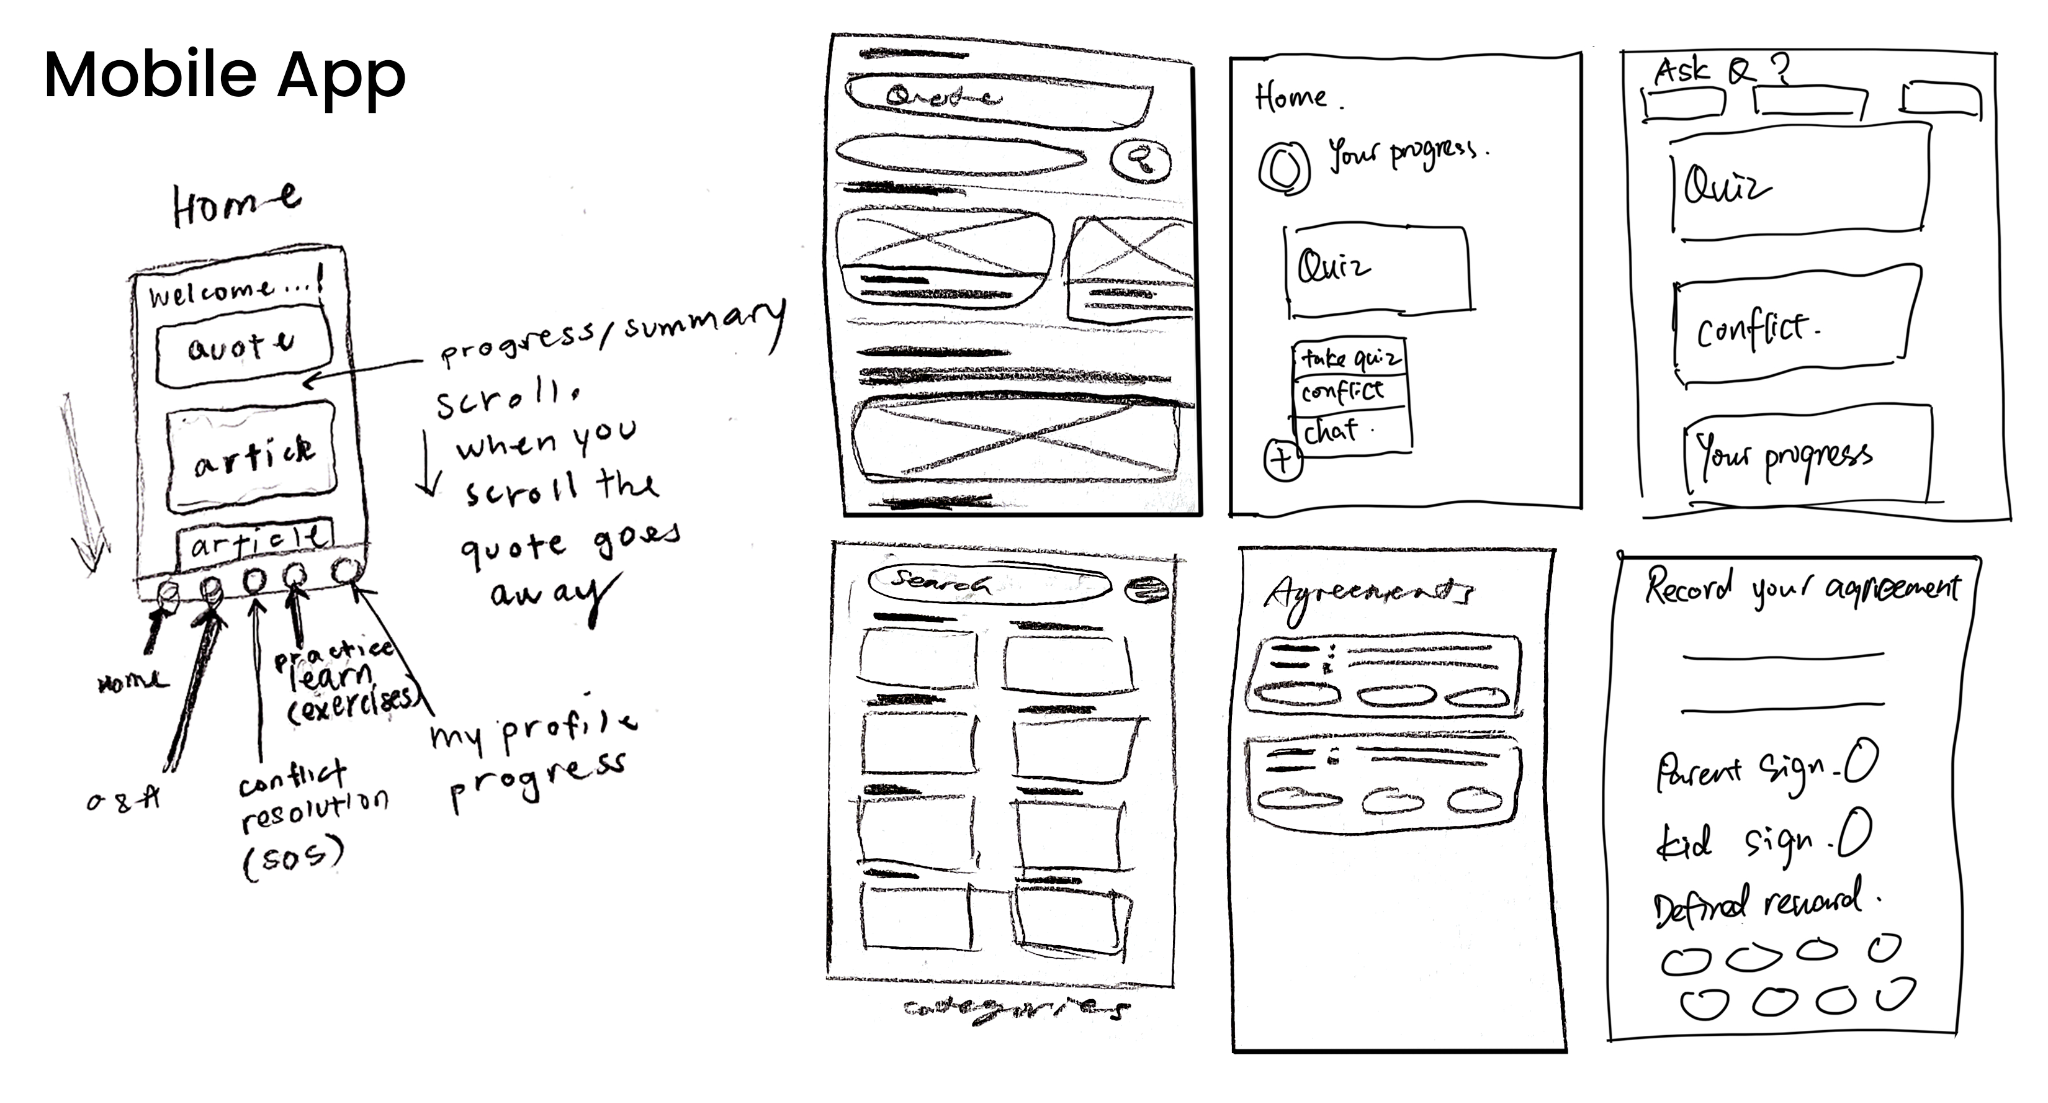 Mobile App
Home
Welcome...!
quote
article
article
progress/summary
scroll.
when you
scroll the
quote goes
away
Home
Q & A
conflict
resolution
(SOS)
practice
learn
(exercises)
my profile
progress
Quote
Home.
Your progress.
Quiz
take quiz
conflict
chat.
+
Ask Q ?
Quiz
conflict.
Your progress
Search
categories
Agreements
Record your agreement
Parent sign.
kid sign.
Defined reward.